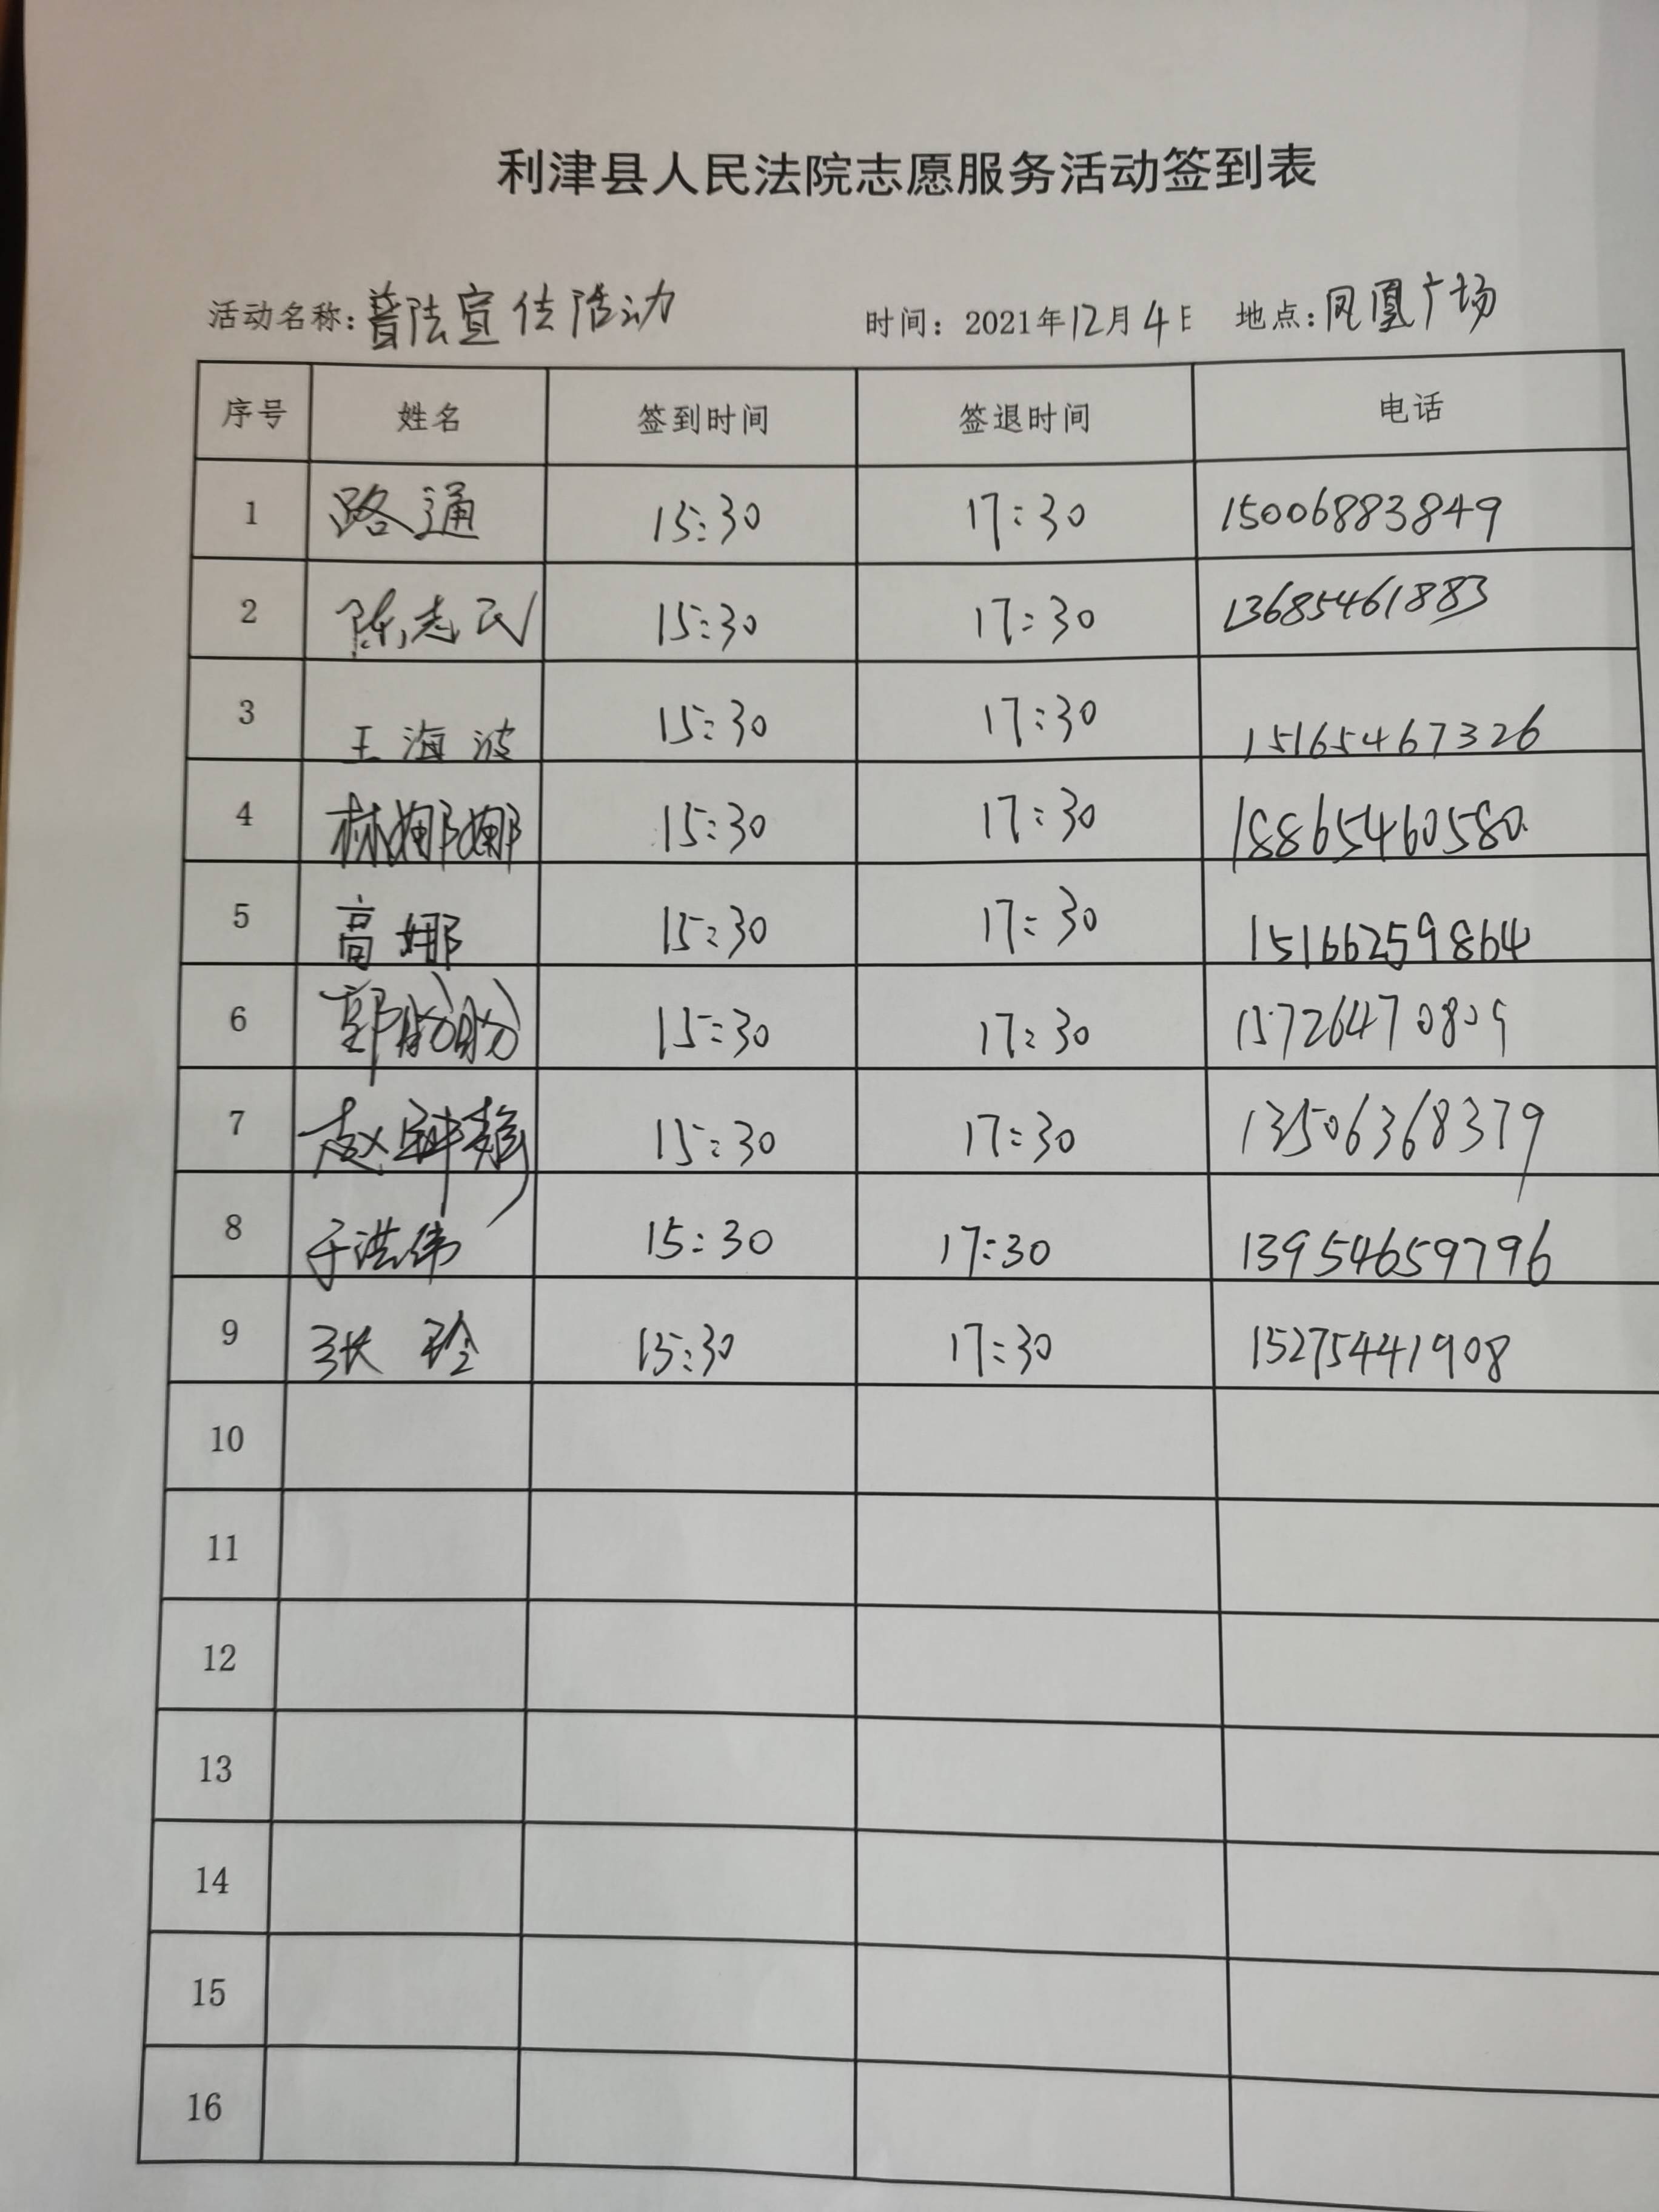 利津县人民法院志愿服务活动签到表
活动名称：普法宣传活动 时间：2021年12月4日 地点：凤凰广场
序号 姓名 签到时间 签退时间 电话
1 路通 15:30 17:30 15006883849
2 陈志民 15:30 17:30 13685461883
3 王海波 15:30 17:30 15165467326
4 林娜娜 15:30 17:30 18865460580
5 高娜 15:30 17:30 15166259864
6 郭盼盼 15:30 17:30 15726470809
7 赵 15:30 17:30 13506368379
8 于洪伟 15:30 17:30 13954659796
9 张玲 15:30 17:30 15275441908
10
11
12
13
14
15
16